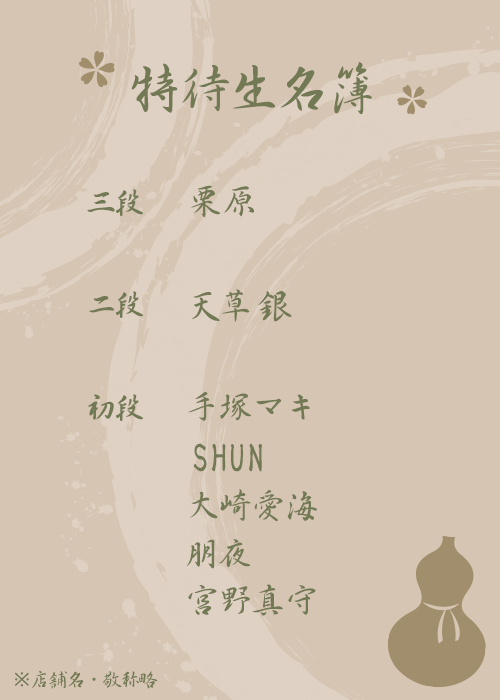 特待生名簿
三段 栗原
二段 天草 銀
初段 手塚マキ
SHUN
大崎愛海
朋夜
宮野真守
※店舗名・敬称略